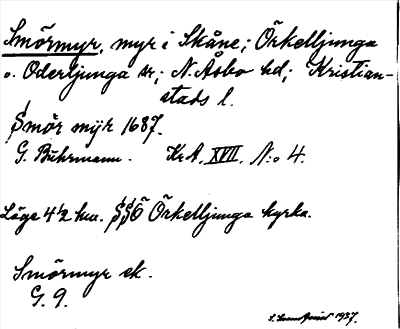 Smörmyr, myr i Skåne; Örkelljunga
o. Oderljunga sr; N. Åsbo hd; Kristian-
stads l.
Smör mÿr 1687.
G. Buhrmann. KrA. XVII. N:o 4.
Läge 4½ hm. SSÖ Örkelljunga kyrka.
Smörmyr ek.
G. 9.
1937.